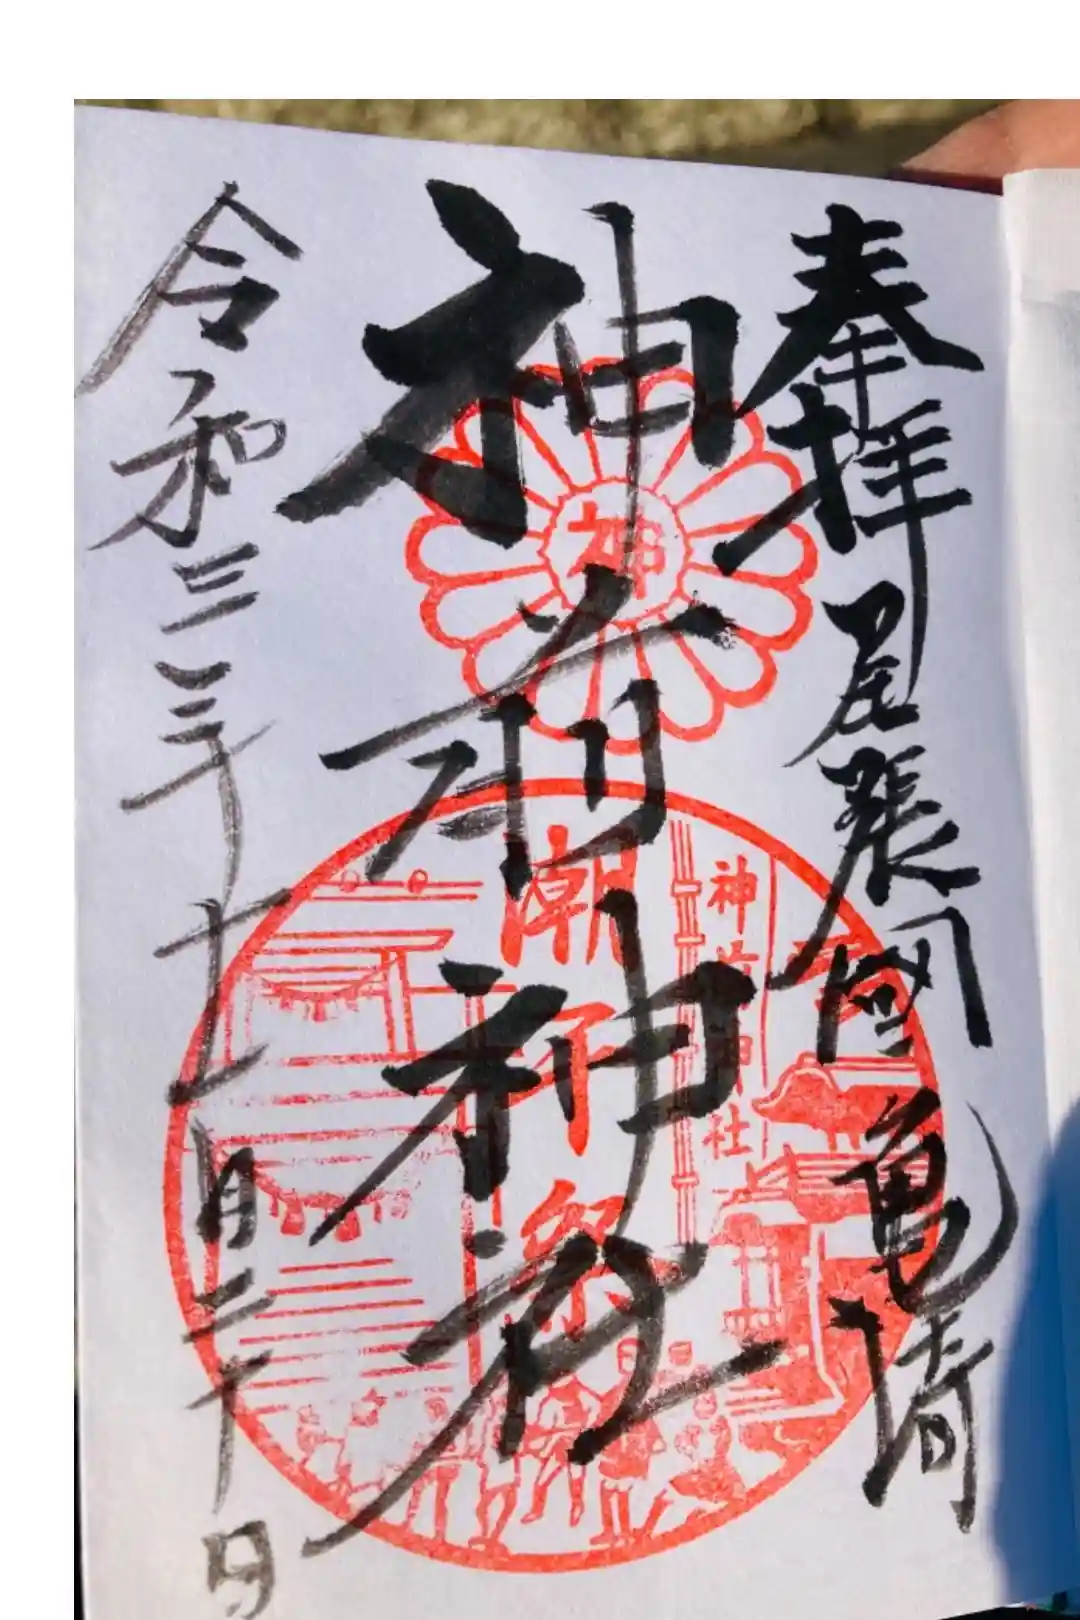 奉拝 尾張國亀崎
神前神社
令和三年十一月二十日
神
神前神社
潮干祭